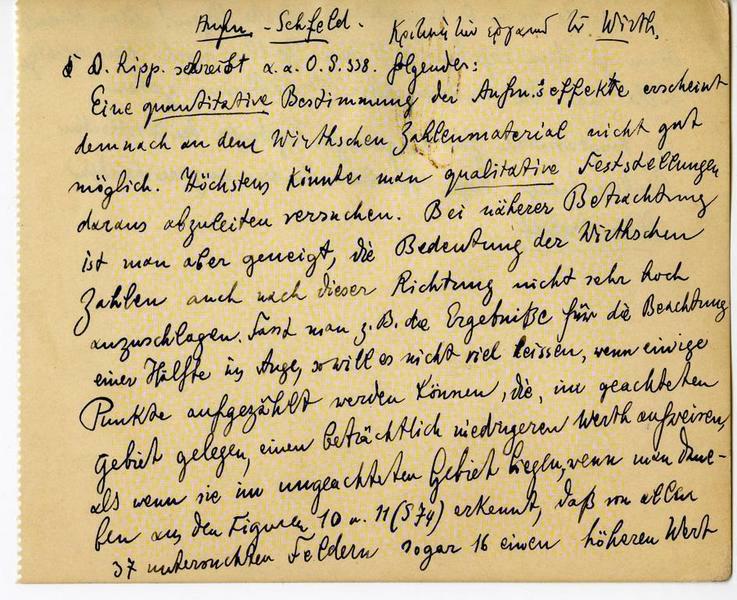 Aufm. - Sehfeld. Wirth.
D. Kipp. schreibt a. a. O. S. 338. folgendes:
Eine quantitative Bestimmung der Aufm.seffekte erscheint
demnach an dem Wirthschen Zahlenmaterial nicht gut
möglich. Höchstens könnte man qualitative Feststellungen
daraus abzuleiten versuchen. Bei näherer Betrachtung
ist man aber geneigt, die Bedeutung der Wirthschen
Zahlen auch nach dieser Richtung nicht sehr hoch
anzuschlagen. Fasst man z. B. die Ergebniße für die Beachtung
einer Hälfte ins Auge, so will es nicht viel heissen, wenn einige
Punkte aufgezählt werden können, die, im geachteten
Gebiet gelegen, einen beträchtlich niedrigeren Werth aufweisen,
als wenn sie im ungeachteten Gebiet liegen, wenn man dane-
ben aus den Figuren 10 u. 11 (S 74) erkennt, daß von allen
37 untersuchten Feldern sogar 16 einen höheren Wert